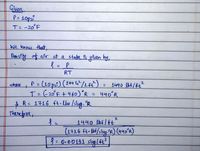 Given
P = 10 psi
T = -20°F
We know that,
Density of air at a state is given by,
ρ = P / RT
where, P = (10 psi) (144 in²/1 ft²) = 1440 lbf/ft²
T = (-20°F + 460)°R = 440°R
& R = 1716 ft·lbf/slug·°R
Therefore,
ρ = 1440 lbf/ft² / (1716 ft·lbf/slug·°R)(440°R)
ρ = 0.00191 slug/ft³